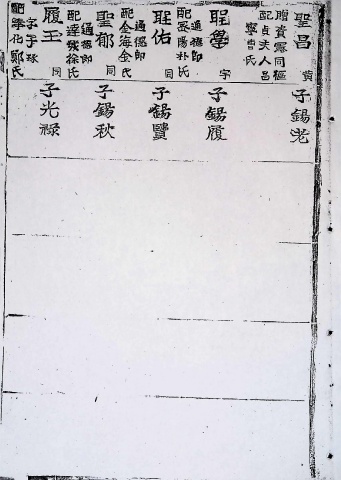 聖昌
贈資憲同樞
配貞夫人昌
寧曺氏
聖學
字
通德郎
配密陽朴氏
聖佑
同
通德郎
配金海金氏
聖郁
同
通德郎
配達城徐氏
履玉
同
字子珍
氏
子錫老
子錫履
子錫賢
子錫秋
子光祿